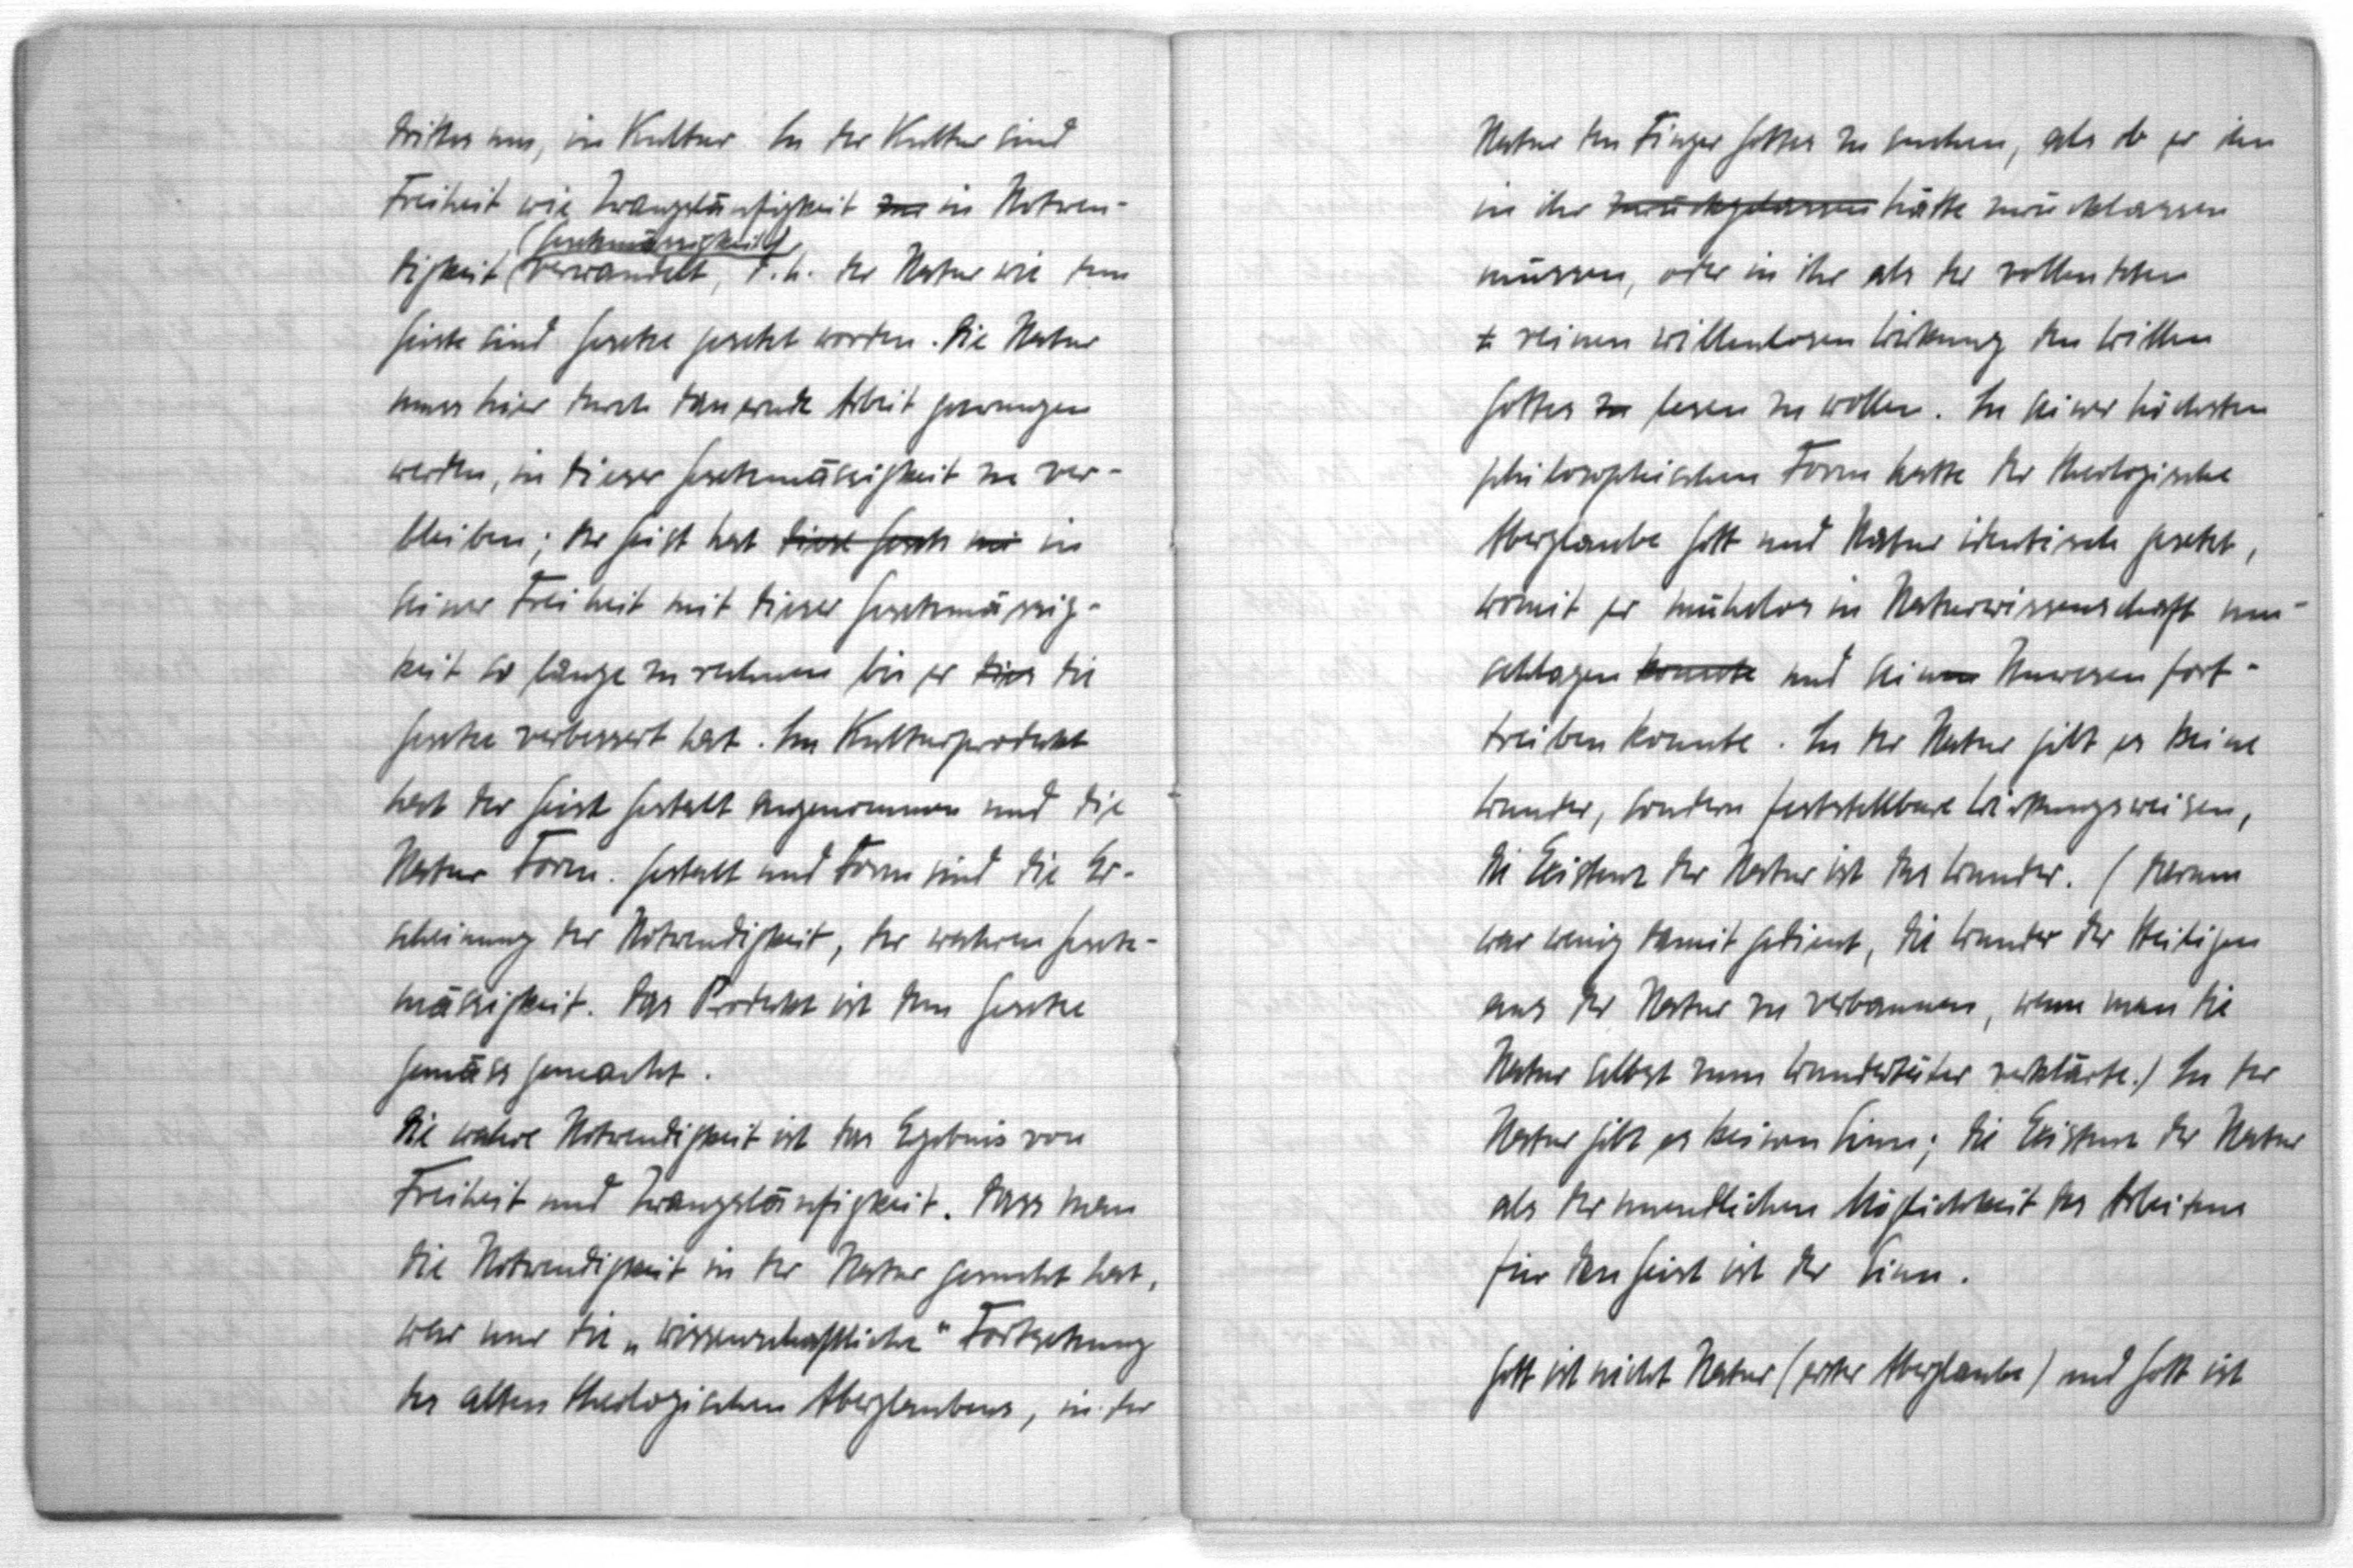 drittes um, in Kultur. In der Kultur sind
Freiheit wie Zwangsläufigkeit zu in Notwen-
(Gesetzmässigkeit)
digkeit verwandelt, d.h. der Natur wie dem
Geiste sind Gesetze gesetzt worden. Die Natur
muss hier durch dauernde Arbeit gezwungen
werden, in dieser Gesetzmässigkeit zu ver-
bleiben; der Geist hat diese Gesetz mi in
seiner Freiheit mit dieser Gesetzmässig-
keit so lange zu rechnen bis er dies die
Gesetze verbessert hat. Im Kulturprodukt
hat der Geist Gestalt angenommen und die
Natur Form. Gestalt und Form sind die Er-
scheinung der Notwendigkeit, der wahren Gesetz-
mässigkeit. Das Produkt ist dem Gesetze
gemäss gemacht.
Die wahre Notwendigkeit ist das Ergebnis von
Freiheit und Zwangsläufigkeit. Dass man
die Notwendigkeit in der Natur gesucht hat,
war nur die „wissenschaftliche" Fortsetzung
des alten theologischen Aberglaubens, in der
Natur den Finger Gottes zu suchen, als ob er ihn
in ihr zurückgelassen hätte zurücklassen
müssen, oder in ihr als der vollendeten
reinen willenlosen Wirkung den Willen
Gottes zu lesen zu wollen. In seiner höchsten
philosophischen Form hatte der theologische
Aberglaube Gott und Natur identisch gesetzt,
womit er mühelos in Naturwissenschaft um-
schlagen konnte und sein Unwesen fort-
treiben konnte. In der Natur gibt es keine
Wunder, sondern feststellbare Wirkungsweisen,
die Existenz der Natur ist das Wunder. (Darum
war wenig damit gedient, die Wunder der Heiligen
aus der Natur zu verbannen, wenn man die
Natur selbst zum Wundertäter verklärte.) In der
Natur gibt es keinen Sinn; die Existenz der Natur
als der unendlichen Möglichkeit des Arbeitens
für den Geist ist der Sinn.
Gott ist nicht Natur (erster Aberglaube) und Gott ist